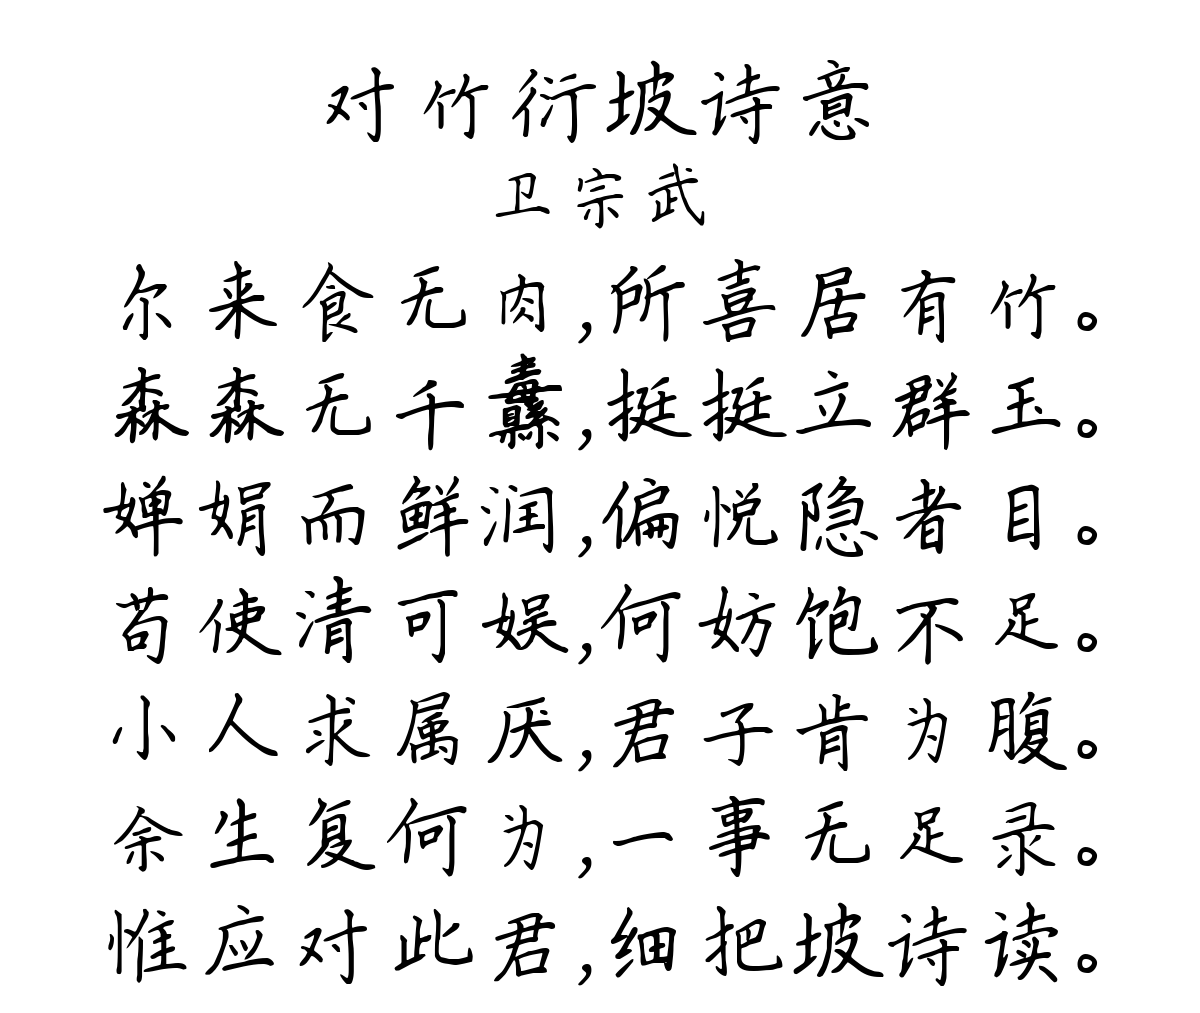 对竹衍坡诗意
卫宗武
尔来食无肉,所喜居有竹。
森森无千纛,挺挺立群玉。
婵娟而鲜润,偏悦隐者目。
苟使清可娱,何妨饱不足。
小人求属厌,君子肯为腹。
余生复何为,一事无足录。
惟应对此君,细把坡诗读。